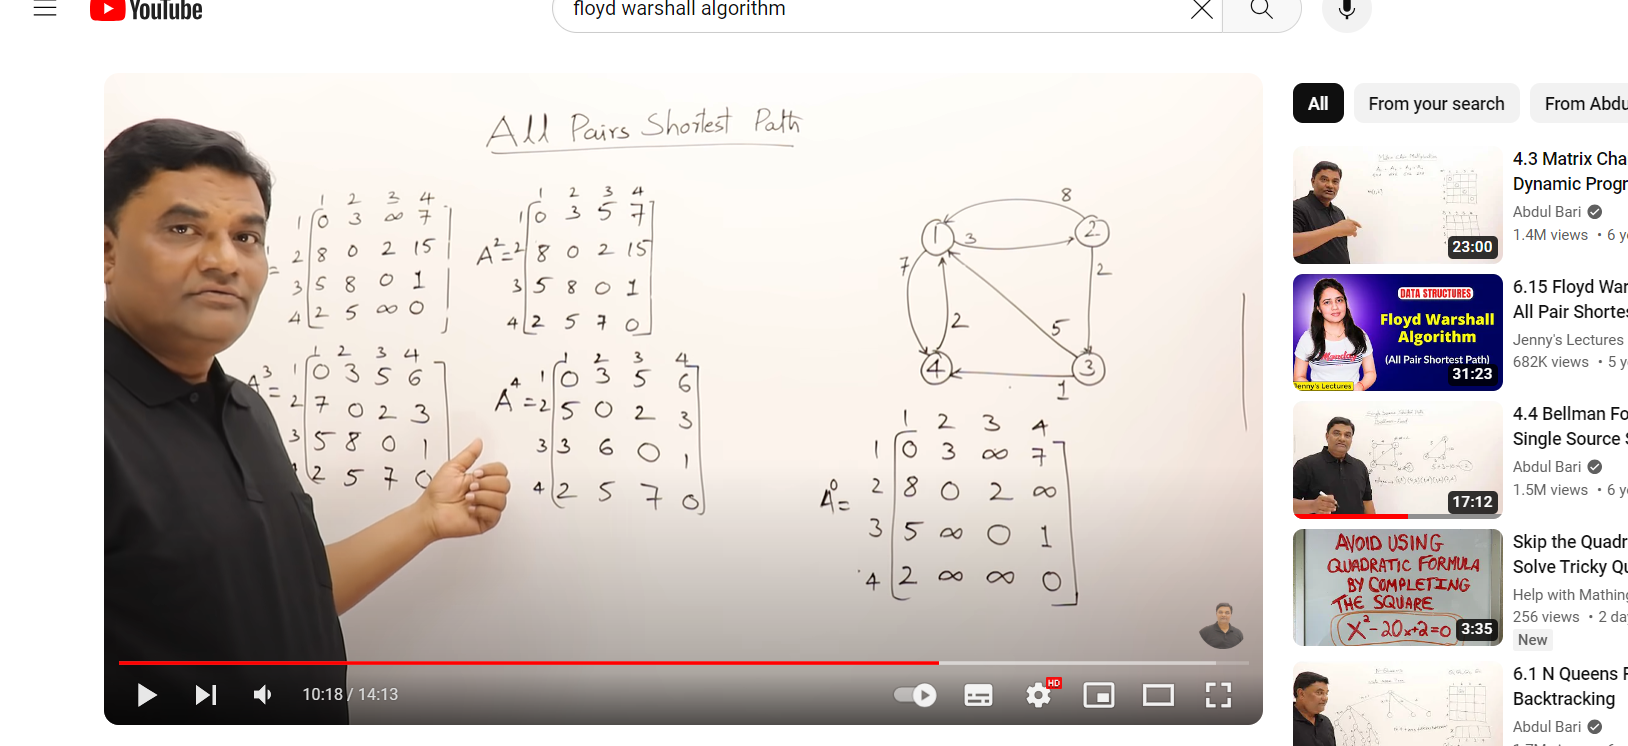 YouTube
floyd warshall algorithm
All Pairs Shortest Path
1 2 3 4
1 0 3 ∞ 7
2 8 0 2 15
= 3 5 8 0 1
4 2 5 ∞ 0
1 2 3 4
1 0 3 5 7
A² = 2 8 0 2 15
3 5 8 0 1
4 2 5 7 0
1 2 3 4
A³ = 1 0 3 5 6
2 7 0 2 3
3 5 8 0 1
2 5 7 0
1 2 3 4
A⁴ = 1 0 3 5 6
2 5 0 2 3
3 3 6 0 1
4 2 5 7 0
8
1 3 2
7 2
2 5
4 3
1
1 2 3 4
1 0 3 ∞ 7
A⁰ = 2 8 0 2 ∞
3 5 ∞ 0 1
4 2 ∞ ∞ 0
10:18 / 14:13
HD
All From your search From Abdu
4.3 Matrix Cha
Dynamic Progr
Abdul Bari
1.4M views • 6 y
23:00
DATA STRUCTURES
Floyd Warshall
Algorithm
(All Pair Shortest Path)
Jenny's Lectures
31:23
6.15 Floyd War
All Pair Shortes
Jenny's Lectures
682K views • 5 y
4.4 Bellman Fo
Single Source S
Abdul Bari
1.5M views • 6 y
17:12
AVOID USING
QUADRATIC FORMULA
BY COMPLETING
THE SQUARE
X²-20x+2=0
3:35
Skip the Quadr
Solve Tricky Qu
Help with Mathing
256 views • 2 da
New
6.1 N Queens P
Backtracking
Abdul Bari